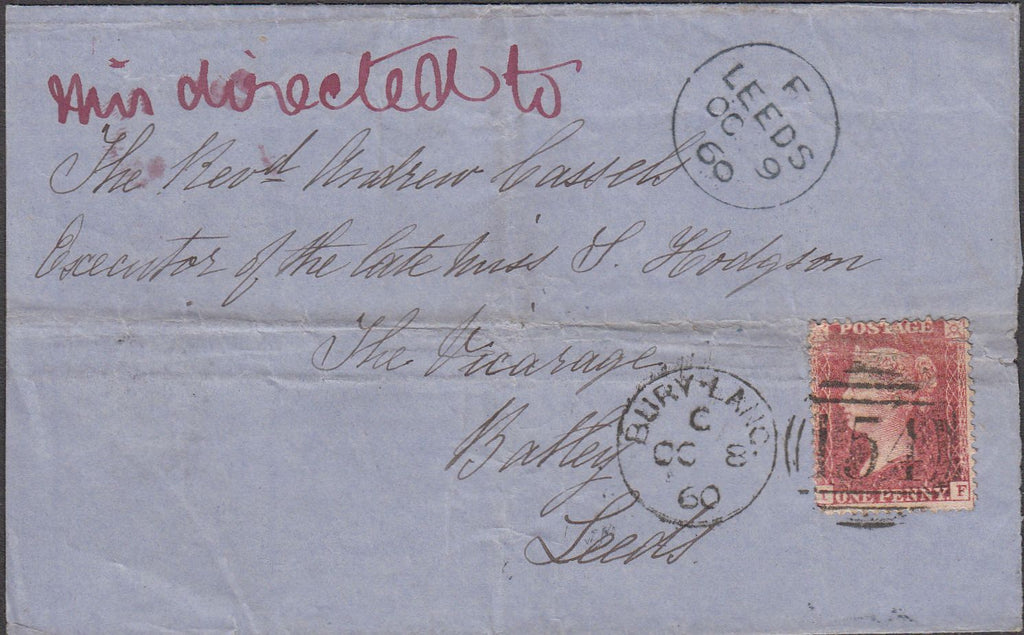 mis directed to
F
LEEDS
OC 9
60
The Revd Andrew Cassels
Executor of the late Miss S. Hodgson
The Vicarage
Batley
Leeds.
BURY-LANC.
C
OC 8
60
POSTAGE
154
ONE PENNY F